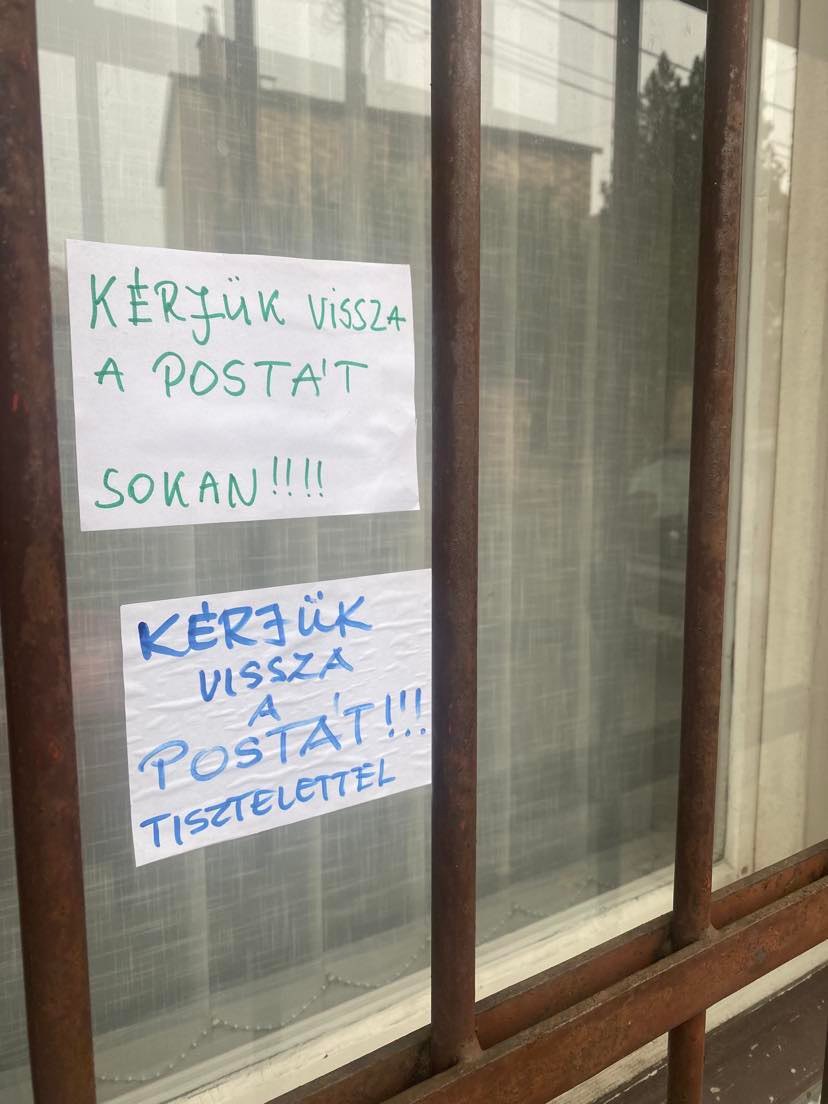 KÉRJÜK VISSZA
A POSTÁT
SOKAN!!!!
KÉRJÜK
VISSZA
A
POSTÁT!!!
TISZTELETTEL